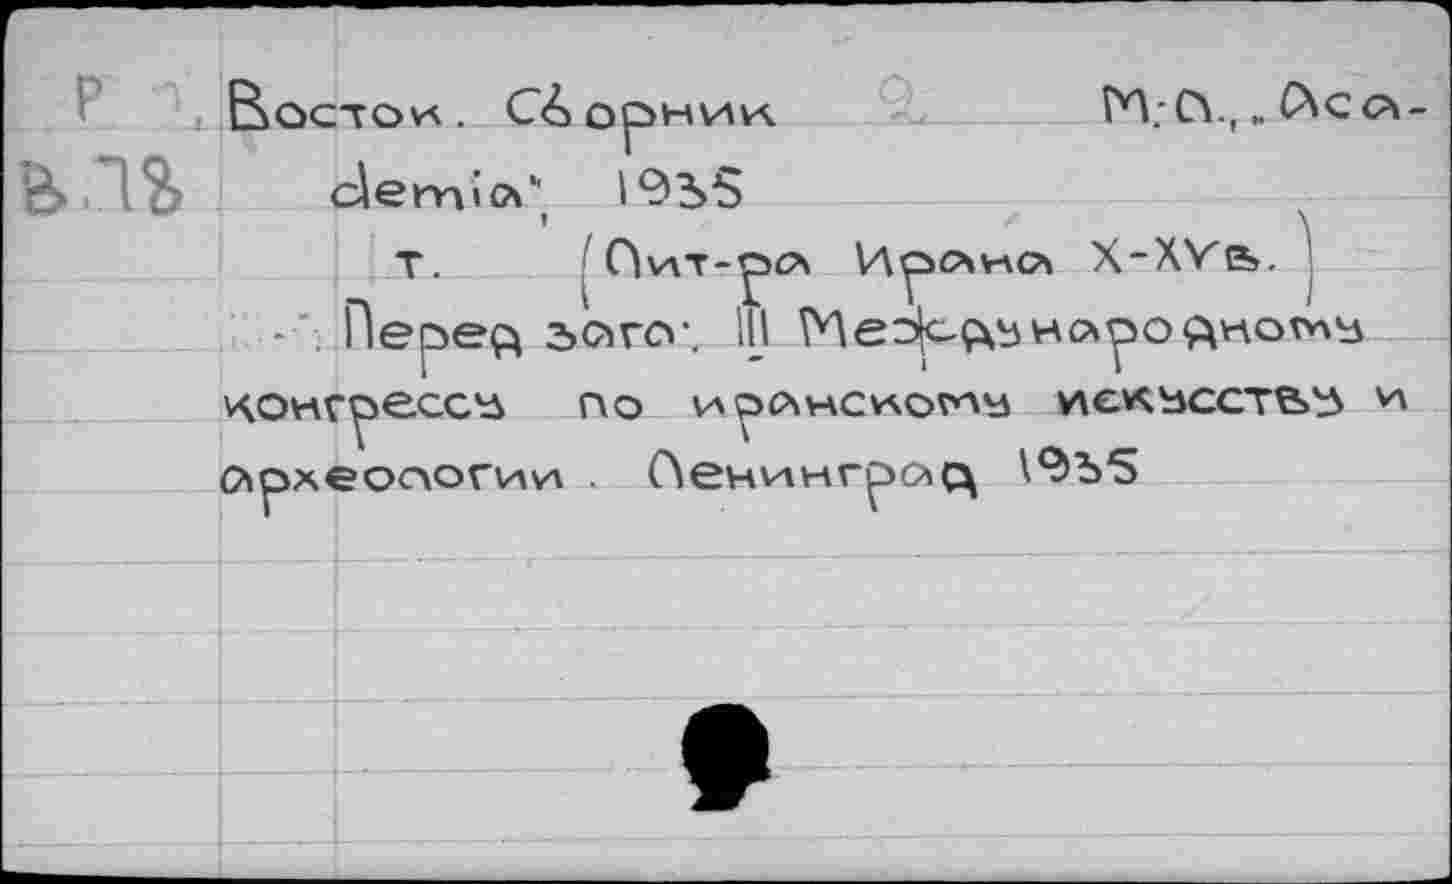 Р Восток. Сборник 2. М;Л., „Aca-
В.78 demia", 1935
т. (Лит-ра Ирана X-XVв.)
Перед загл: III Международному
конгрессу по иранскому искусству и
археологии. Ленинград 1935